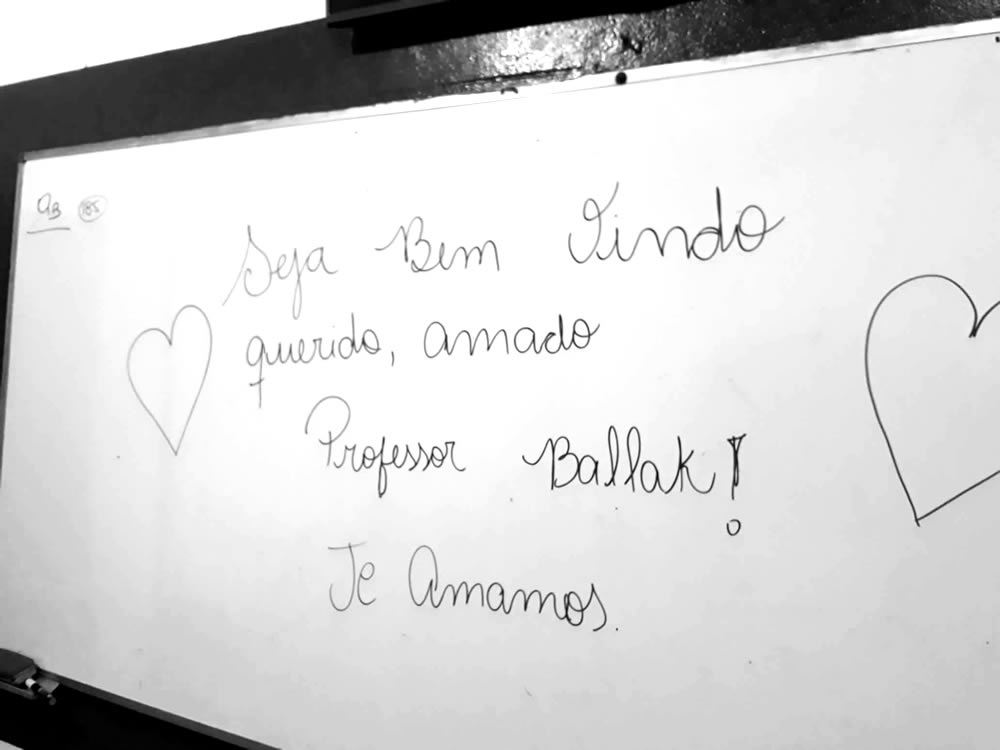 9B 185
Seja Bem Vindo
querido, amado
Professor Ballak!
Te Amamos.